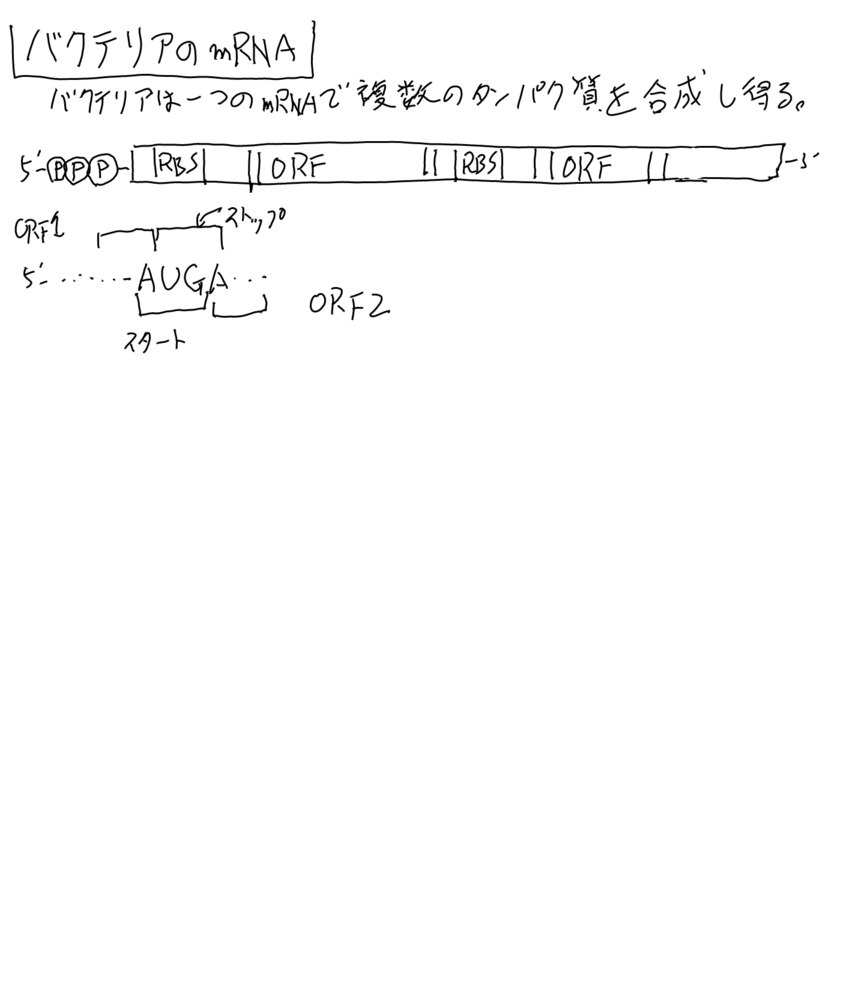 バクテリアのmRNA
バクテリアは一つのmRNAで複数のタンパク質を合成し得る。
5'-PPP- RBS ORF RBS ORF -3'
ORF1 ストップ
5'-……-AUGA…
スタート ORF2